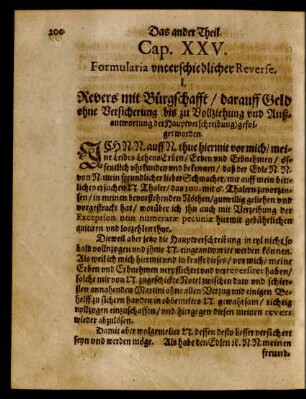 200
Das ander Theil.
Cap. XXV.
Formularia vnterschiedlicher Reverse.
I.
Revers mit Bürgschafft / darauff Geld
ohne Versicherung (bis zu Vollziehung und Auß-
antwortung der Hauptverschreibung) gefol-
get worden.
ICH N N. auff N. thue hiermit vor mich / mei-
ne Leibes-Lehens Erben / Erben und Erbnehmen / öf-
fentlich uhrkunden und bekennen / daß der Edle N. N.
von N. mein freundlicher lieber Schwacher / mir auff mein bitt-
liches ersuchen N. Thaler / das 100. mit 6. Thalern zuvorzin-
sen / in meinen bevorstehenden Nöthen / gutwillig geliehen und
vorgestreckt hat / worüber ich ihn auch mit Verzeihung der
Exception non numeratæ pecuniæ hiermit gebührlichen
quitiren und loszehlen thue.
Dieweil aber jetzo die Hauptverschreibung in epl nicht so
bald vollzogen und ihme N. eingeantwortet werden können.
Als will ich mich hiermit und in krafft dieses / vor mich / meine
Erben und Erbnehmen verpflichtet und verreversiret haben /
solche mir von N. zugestelte Notel zwischen dato und schier-
sten annahenden Martini ohne allen Verzug und einigen Be-
helff zu sichern handen in obbemeltes N. gewahrsam / richtig
vollzogen einzuschaffen / und hiergegen diesen meinen revers
wieder abzulösen.
Damit aber wolgemelter N. dessen desto besser versichert
seyn und werden möge. Als habe den Edlen ꝛc. N. N. meinen
freund-